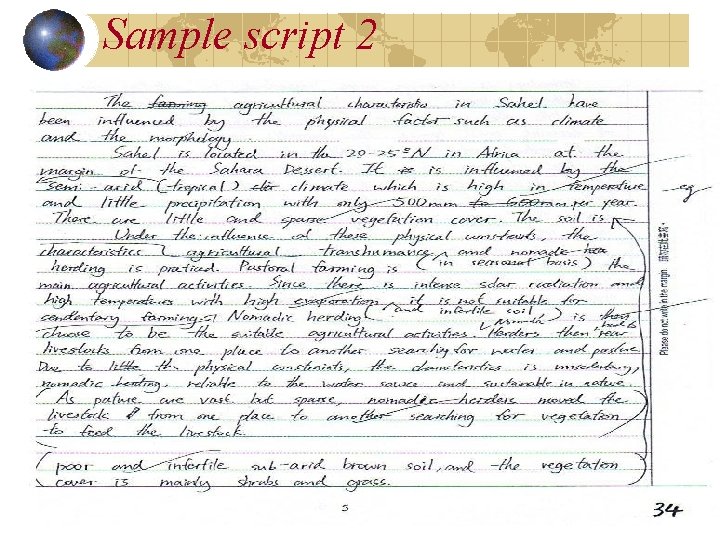 Sample script 2
The farming agricultural characteristics in Sahel have
been influenced by the physical factor such as climate
and the morphology
Sahel is located in the 20-25°N in Africa at the
margin of the Sahara Dessert. It is is influenced by the
semi-arid (tropical) climate which is high in temperature eg
and little precipitation with only 500mm to 600mm per year.
There are little and sparse vegetation cover. The soil is
Under the influence of these physical constraints, the
characteristics agricultural transhumance, and nomadic
herding is praticed. Pastoral farming is (in seasonal basis) the
main agricultural activities. Since there is intense solar radiation and
high temperatures with high evaporation, it is not suitable for
sendentary farming. Nomadic herding (and infertile soil) is
choose to be the suitable agricultural activities. Herders then rear
livestocks from one place to another searching for water and pasture
Due to little the physical constraints, the characteristics is
nomadic herding, reliable to the water source and sustainable in nature.
As pature are vast but sparse, nomadic herders moved the
livestock from one place to another searching for vegetation
to feed the livestock.
(poor and infertile sub-arid brown soil, and the vegetation
cover is mainly shrubs and grass.
Please do not write in the margin.
5
34